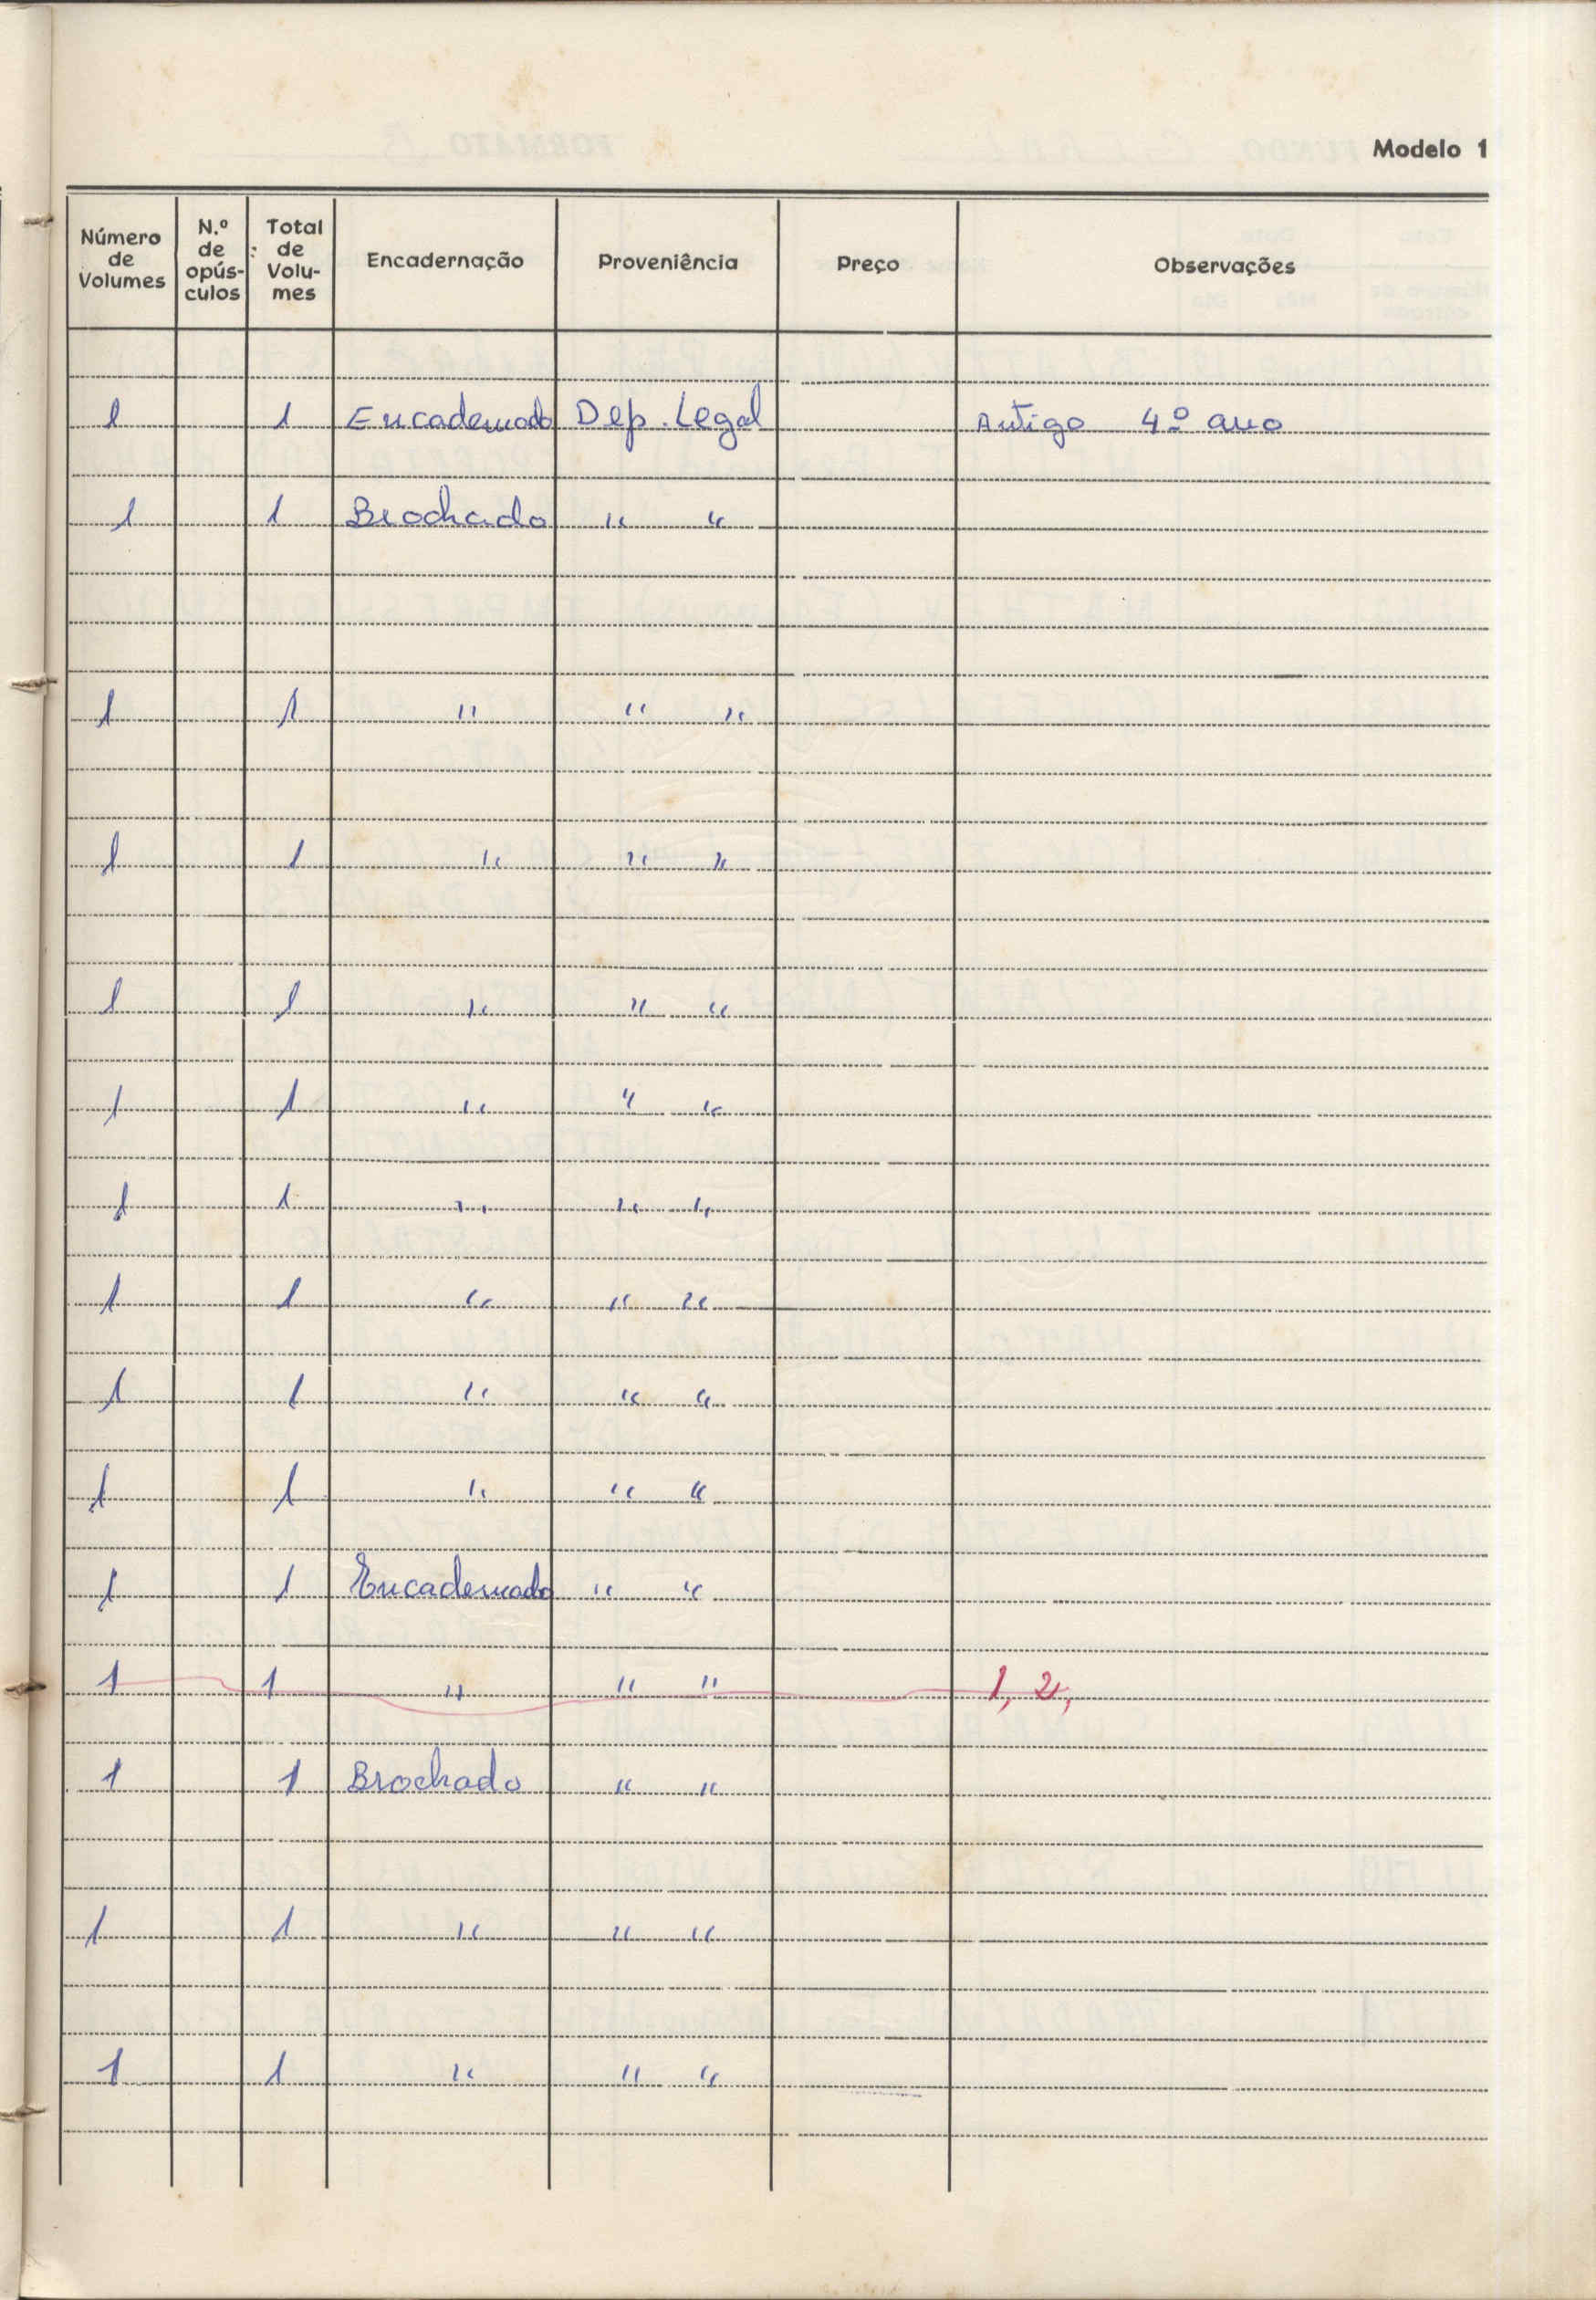 Modelo 1
Número de Volumes N.º de opús-culos Total de Volu-mes Encadernação Proveniência Preço Observações
1 1 Encadernado Dep. Legal Antigo 4º ano
1 1 Brochado " "
1 1 " " "
1 1 " " "
1 1 " " "
1 1 " " "
1 1 " " "
1 1 " " "
1 1 " " "
1 1 " " "
1 1 Encadernado " "
1 1 " " " 1, 2,
1 1 Brochado " "
1 1 " " "
1 1 " " "